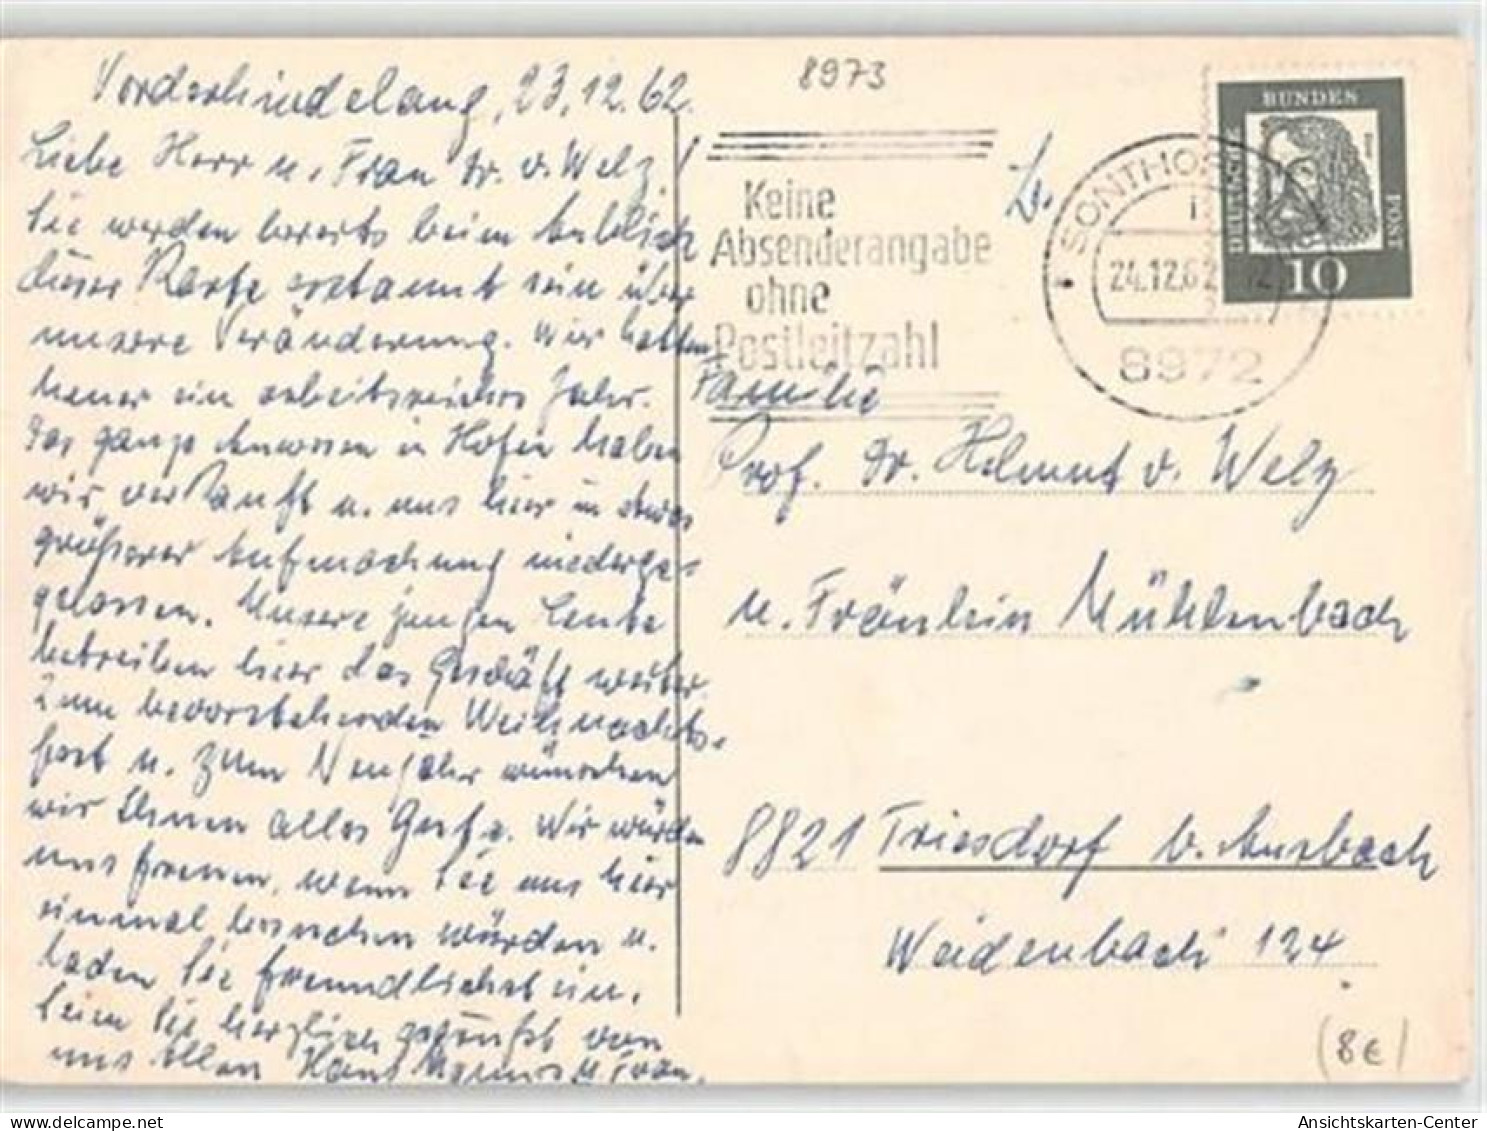 8973
Vorderhindelang, 23.12.62.
Liebe Herr u. Frau Dr. v. Welz!
Sie werden bereits beim Anblick
dieser Karte erstaunt sein über
unsere Veränderung. Wir hatten
heuer ein arbeitsreiches Jahr.
Das ganze Anwesen in Hofen haben
wir verkauft u. uns hier in etwas
größerer Aufmachung niederge-
gelassen. Unsere jungen Leute
betreiben hier das Geschäft weiter.
Zum bevorstehenden Weihnachts-
fest u. zum Neujahr wünschen
wir Ihnen alles Gute. Wir würden
uns freuen, wenn Sie uns hier
einmal besuchen würden u.
laden Sie freundlichst ein.
Seien Sie herzlich gegrüßt von
uns allen Hans u. Frau.
Keine
Absenderangabe
ohne
Postleitzahl
SONTHOFEN
24.12.62
8972
BUNDES
DEUTSCHE
POST
10
Familie
Prof. Dr. Helmut v. Welz
u. Fräulein Mühlenbach
8821 Triesdorf b. Ansbach
Weidenbach 124
(8€)
Ansichtskarten-Center